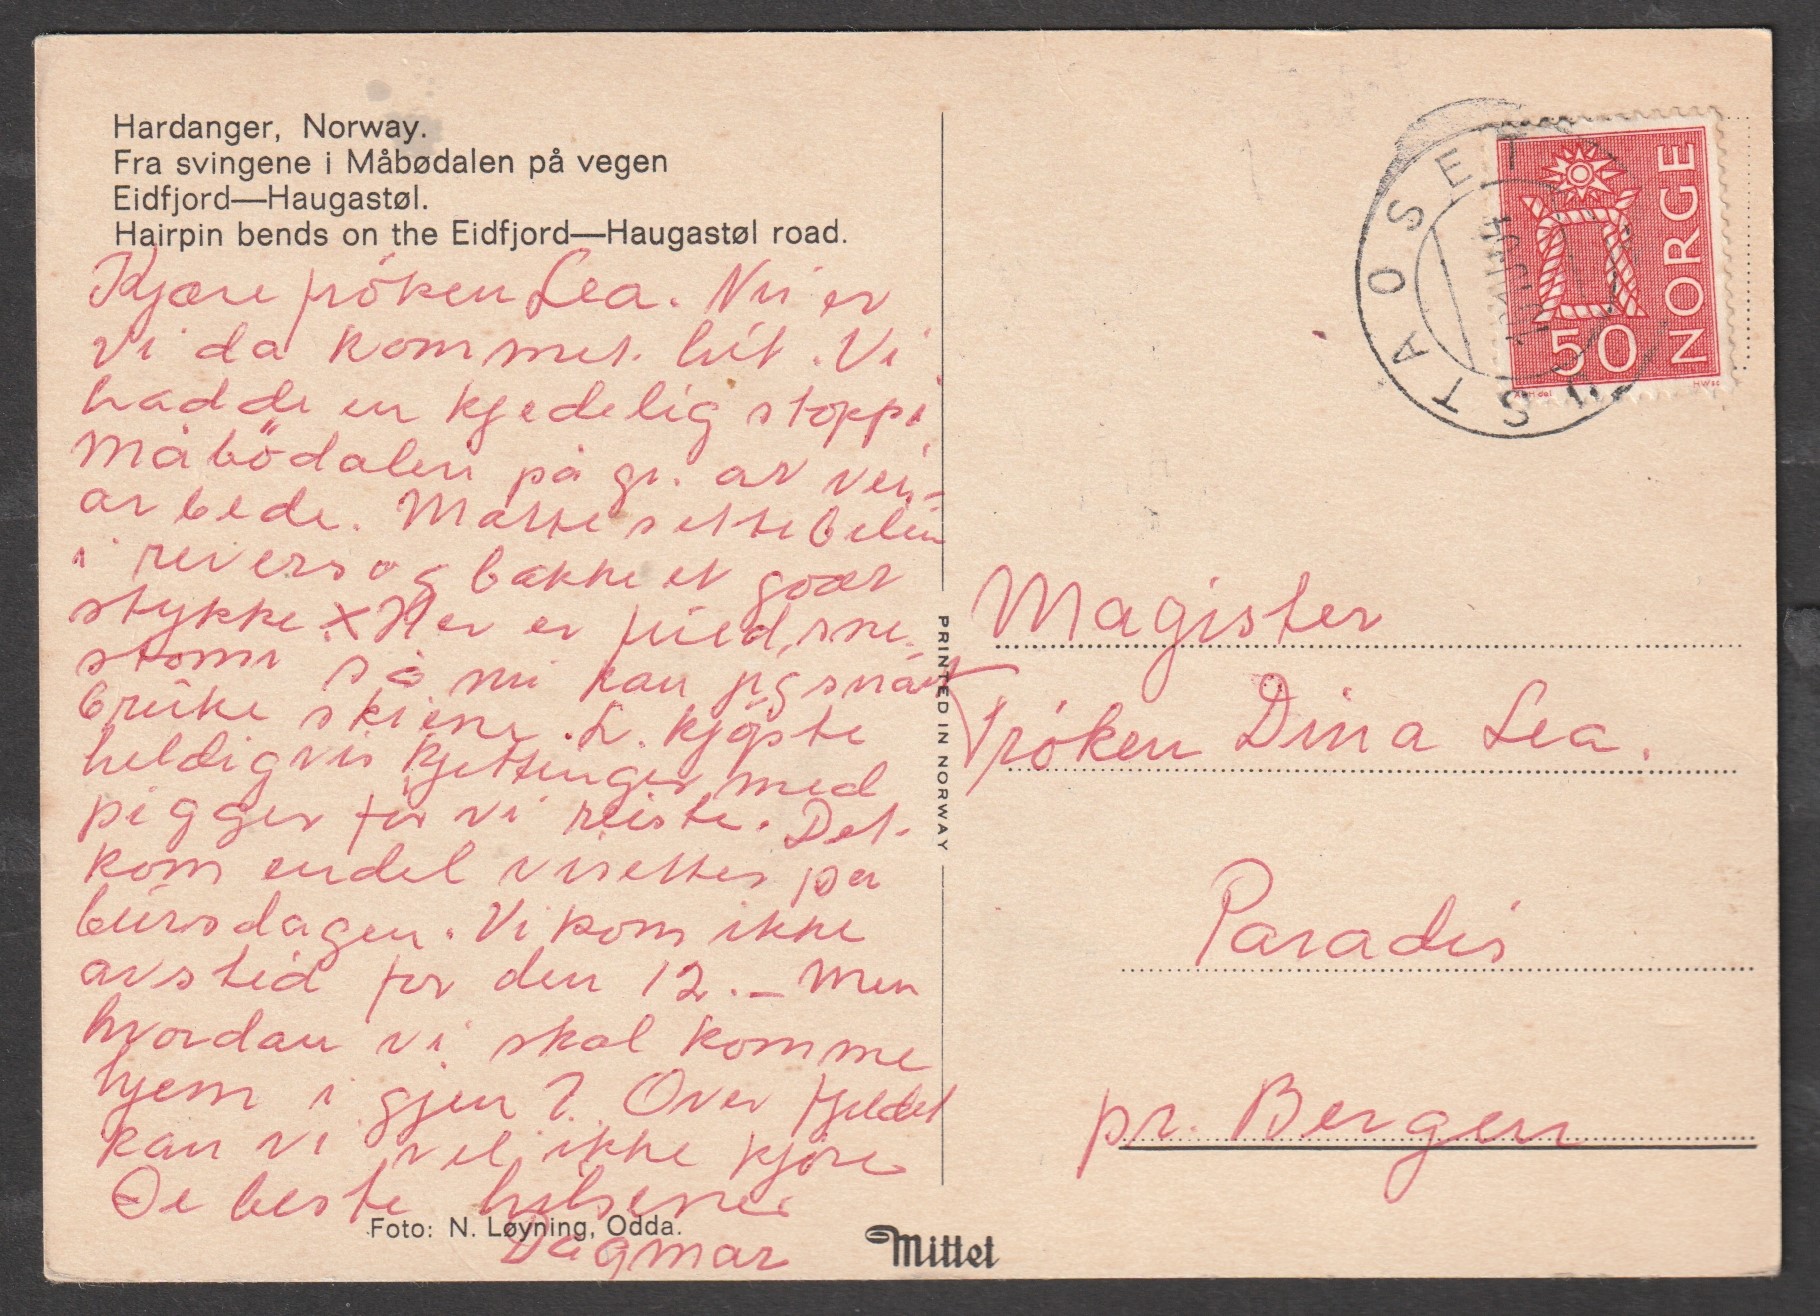 Hardanger, Norway.
Fra svingene i Måbødalen på vegen
Eidfjord—Haugastøl.
Hairpin bends on the Eidfjord—Haugastøl road.
Kjære fröken Lea. Nu er
vi da kommet hit. Vi
hadde en kjedelig stopp i
Måbödalen på gr. av vei-
arbede. Måtte sette bilen
i revers og bakke et godt
stykke. X Her er full sne-
storm så nu kan jeg snart
bruke skiene. L. kjöpte
heldigvis kjettinger med
pigger før vi reiste. Det
kom endel visitter på
bursdagen. Vi kom ikke
avsted før den 12. – Men
hvordan vi skal komme
hjem igjen? Over fjeldet
kan vi vel ikke kjøre
De beste hilsener
Dagmar
Foto: N. Løyning, Odda.
Mittet
PRINTED IN NORWAY
USTAOSET
NORGE
50
Magister
Fröken Dina Lea.
Paradis
pr. Bergen